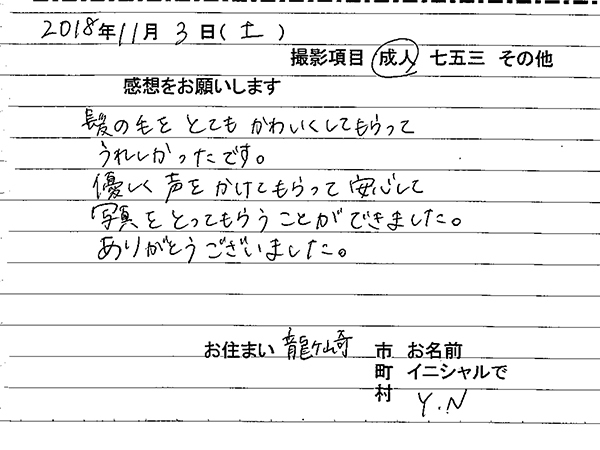 2018年11月3日(土)
撮影項目 成人 七五三 その他
感想をお願いします
髪の毛を とても かわいくしてもらって
うれしかったです。
優しく 声を かけてもらって 安心して
写真を とってもらう ことが できました。
ありがとうございました。
お住まい 龍ヶ崎 市 お名前
町 イニシャルで
村 Y.N